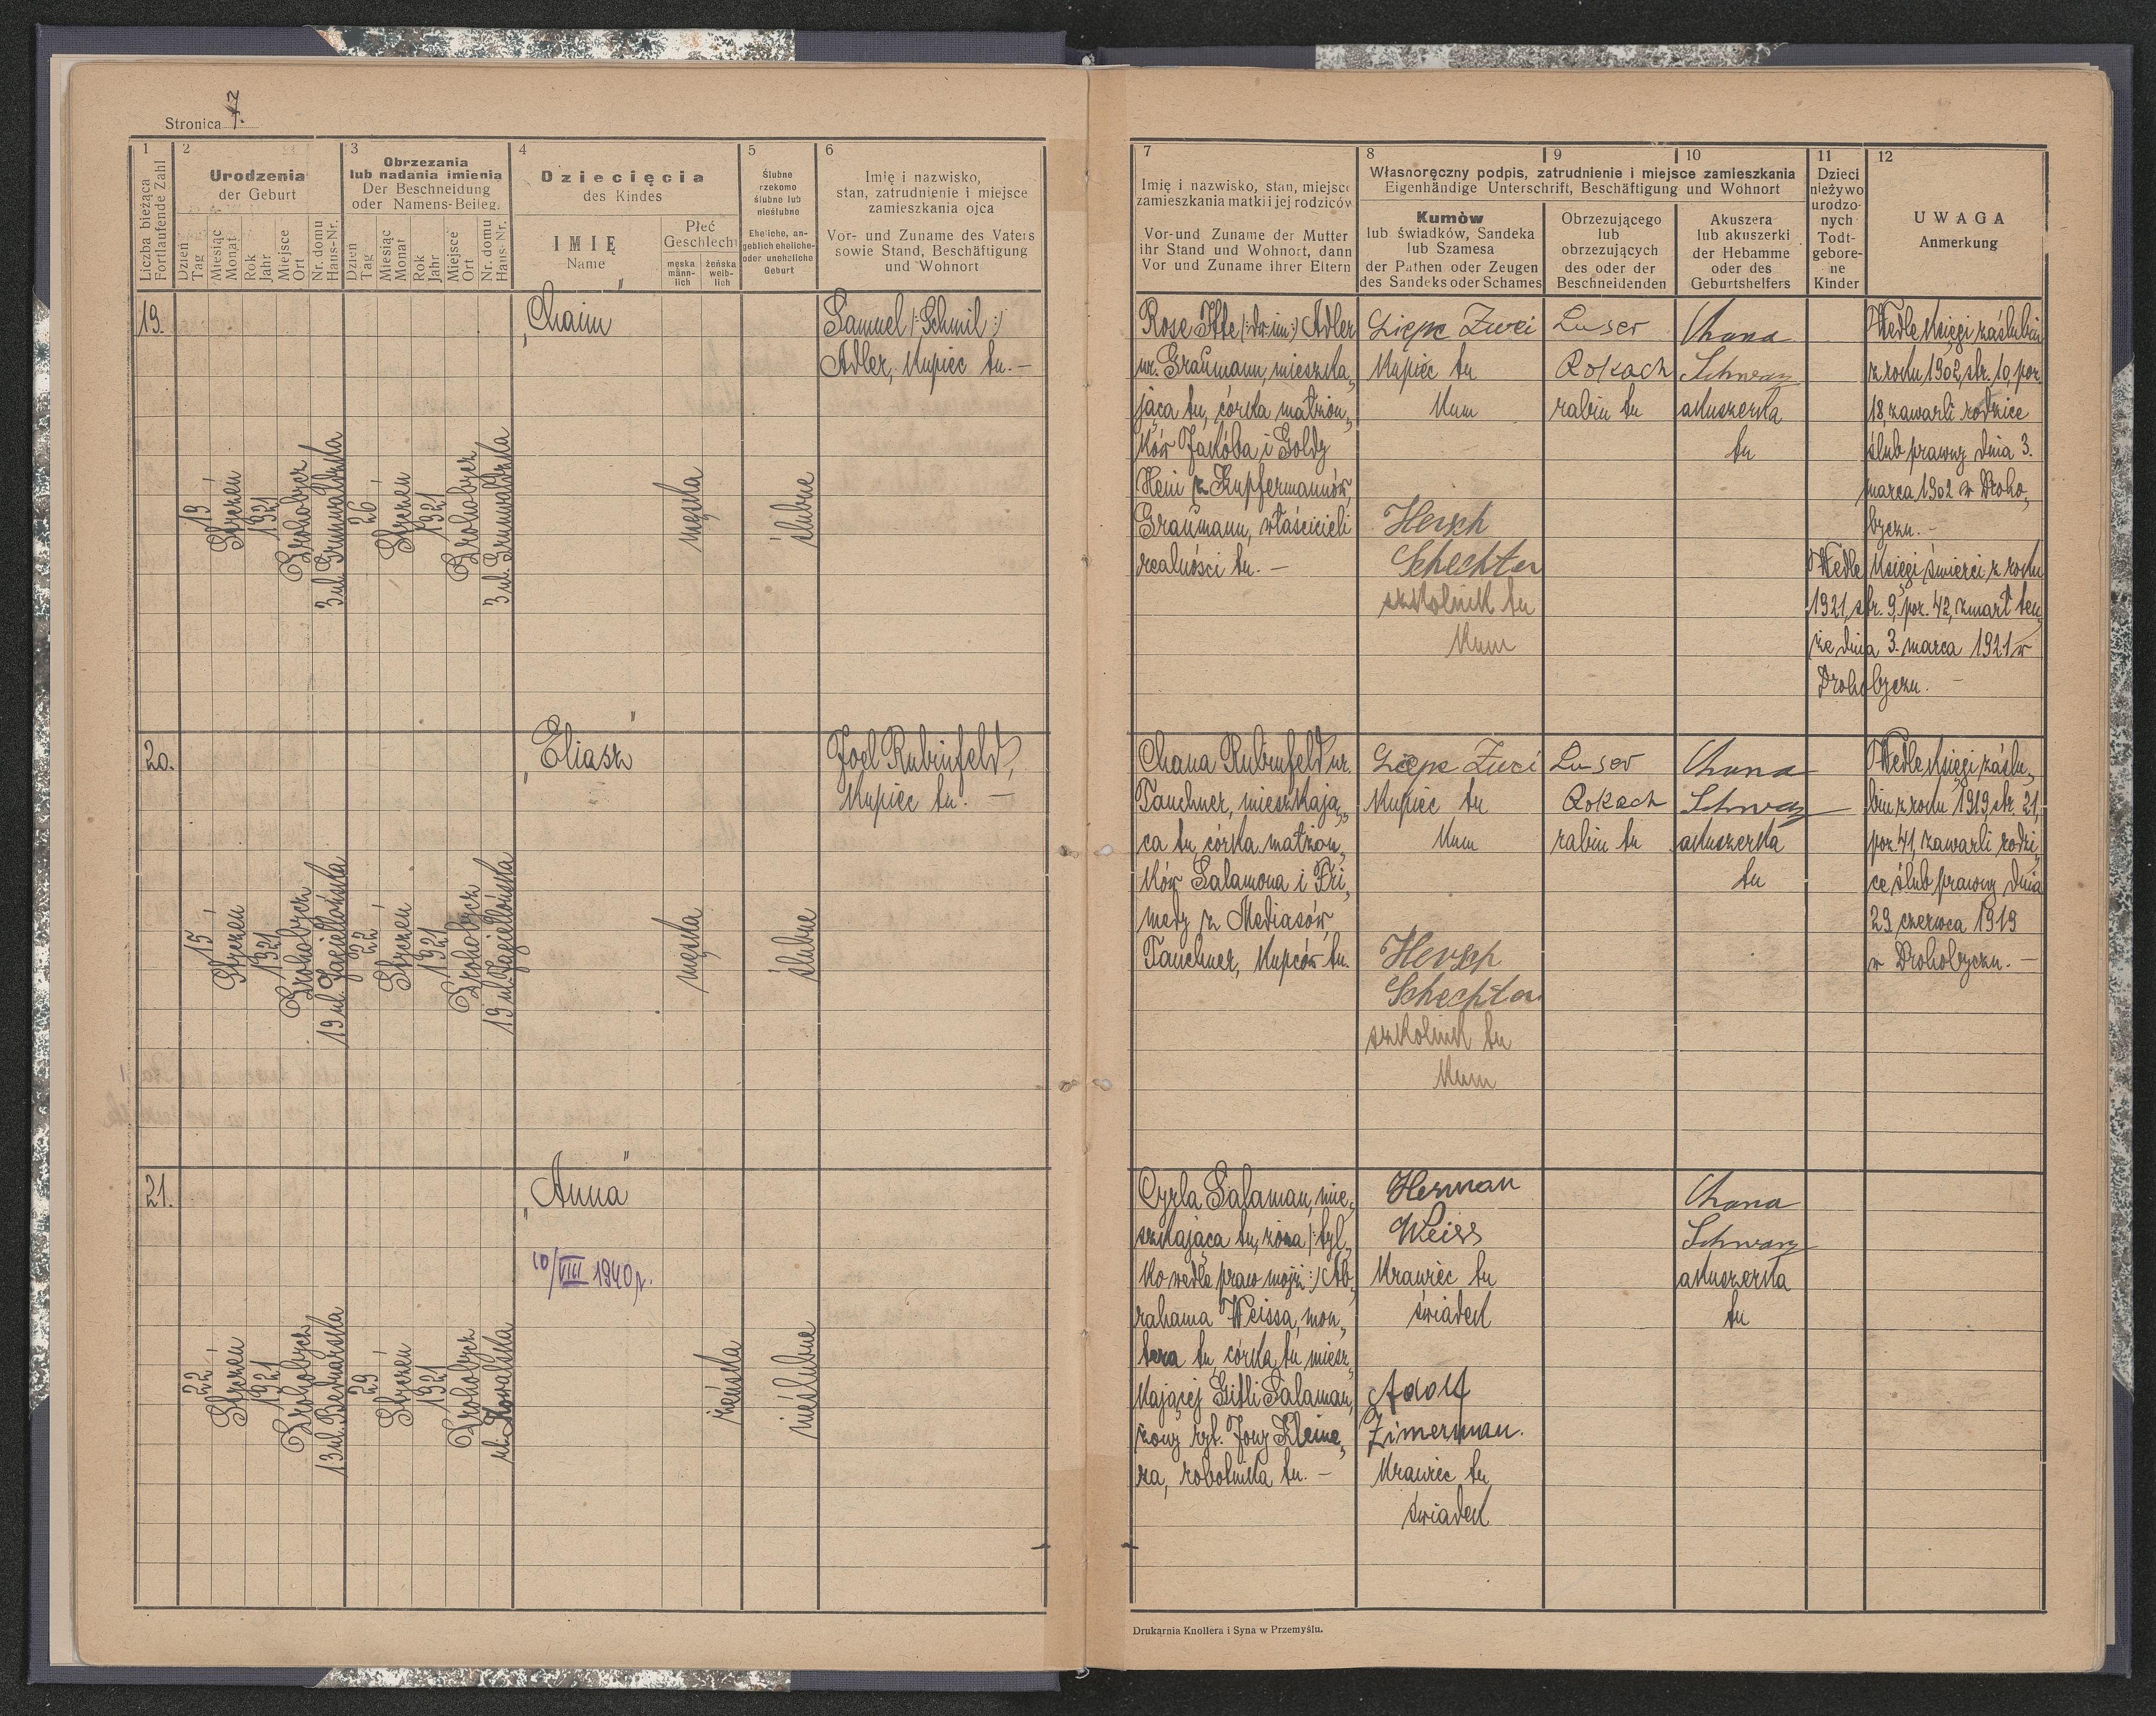 Stronica 7.
1
Liczba bieżąca
Fortlaufende Zahl
2
Urodzenia
der Geburt
Dzień
Tag
Miesiąc
Monat
Rok
Jahr
Miejsce
Ort
Nr. domu
Haus-Nr.
3
Obrzezania
lub nadania imienia
Der Beschneidung
oder Namens-Beileg.
Dzień
Tag
Miesiąc
Monat
Rok
Jahr
Miejsce
Ort
Nr. domu
Haus-Nr.
4
Dziecięcia
des Kindes
IMIĘ
Name
Płeć
Geschlecht
męska
männ-
lich
żeńska
weib-
lich
5
Ślubne
rzekomo
ślubne lub
nieślubne
Eheliche, an-
geblich eheliche-
oder uneheliche
Geburt
6
Imię i nazwisko,
stan, zatrudnienie i miejsce
zamieszkania ojca
Vor- und Zuname des Vaters
sowie Stand, Beschäftigung
und Wohnort
7
Imię i nazwisko, stan, miejsce
zamieszkania matki i jej rodziców
Vor-und Zuname der Mutter
ihr Stand und Wohnort, dann
Vor und Zuname ihrer Eltern
8
9
10
Własnoręczny podpis, zatrudnienie i miejsce zamieszkania
Eigenhändige Unterschrift, Beschäftigung und Wohnort
Kumów
lub świadków, Sandeka
lub Szamesa
der Pathen oder Zeugen
des Sandeks oder Schames
Obrzezującego
lub
obrzezujących
des oder der
Beschneidenden
Akuszera
lub akuszerki
der Hebamme
oder des
Geburtshelfers
11
Dzieci
nieżywo
urodzo-
nych
Todt-
gebore-
ne
Kinder
12
UWAGA
Anmerkung
19.
19
Styczeń
1921
Drohobycz
3 ul. Grunwaldzka
26
Styczeń
1921
Drohobycz
3 ul. Grunwaldzka
„Chaim”
męska
ślubne
Samuel /: Schmil :/
Adler, kupiec tu. —
Rose Itte /: dw. im :/ Adler
ur. Graumann, mieszka„
jąca tu, córka małżon„
ków Jakóba i Goldy
Hein z Kupfermannów
Graumann, właścicieli
realności tu. —
Liepe Zwei
kupiec tu
kum
Hersch
Schechter
szkolnik tu
kum
Luser
Rokach
rabin tu
Chana
Schwarz
akuszerka
tu
Wedle księgi zaślubin
z roku 1902, str. 10, poz.
18, zawarli rodzice
ślub prawny dnia 3.
marca 1902 w Droho„
byczu. —
Wedle księgi śmierci z roku
1921, str. 9, poz. 42, zmarł ten„
że dnia 3. marca 1921 w
Drohobyczu. —
20.
15
Styczeń
1921
Drohobycz
19 ul. Jagiellońska
22
Styczeń
1921
Drohobycz
19 ul. Jagiellońska
„Eliasz”
męska
ślubne
Joel Rubinfeld,
kupiec tu. —
Chana Rubinfeld ur.
Tauchner, mieszkają„
ca tu, córka małżon„
ków Salamona i Fri„
medy z Mediasów
Tauchner, kupców tu.
Liepe Zwei
kupiec tu
kum
Hersch
Schechter
szkolnik tu
kum
Luser
Rokach
rabin tu
Chana
Schwarz
akuszerka
tu
Wedle księgi zaślu„
bin z roku 1919, str. 21,
poz. 41, zawarli rodzi„
ce ślub prawny dnia
29 czerwca 1919
w Drohobyczu. —
21.
22
Styczeń
1921
Drohobycz
13 ul. Bednarska
29
Styczeń
1921
Drohobycz
ul. Kowalska
„Anna”
10/VIII 1940 r.
żeńska
nieślubne
Cyrla Salaman, mie„
szkająca tu, żona /: tyl„
ko wedle praw mojż :/ Ab„
rahama Weissa, mon„
tera tu, córka tu miesz„
kającej Gitli Salaman,
żony ryt. Jony Kleine„
ra, robotnika tu. —
Herman
Weiss
krawiec tu
świadek
Adolf
Zimerman.
krawiec tu,
świadek
Chana
Schwarz
akuszerka
tu
Drukarnia Knollera i Syna w Przemyślu.